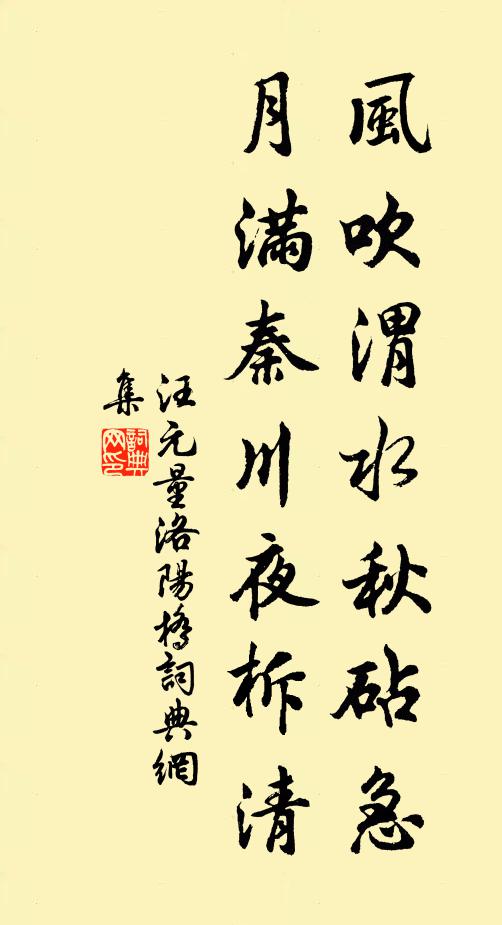 風吹渭水秋砧急
月滿秦川夜柝清
汪元量洛陽橋詞典網
集
詞典網印